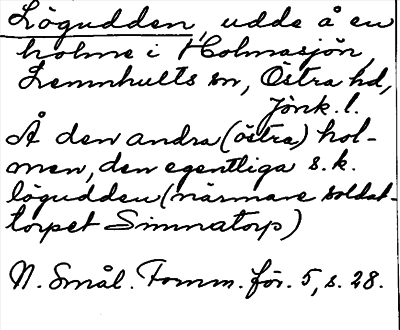 Lögudden, udde å en
holme i Holmasjön,
Lemnhults sn, Östra hd,
Jönk. l.
Å den andra (östra) hol-
men, den egentliga s.k.
lögudden (närmare soldat-
torpet Simnatorp)
N. Smål. Fornm. för. 5, s. 28.